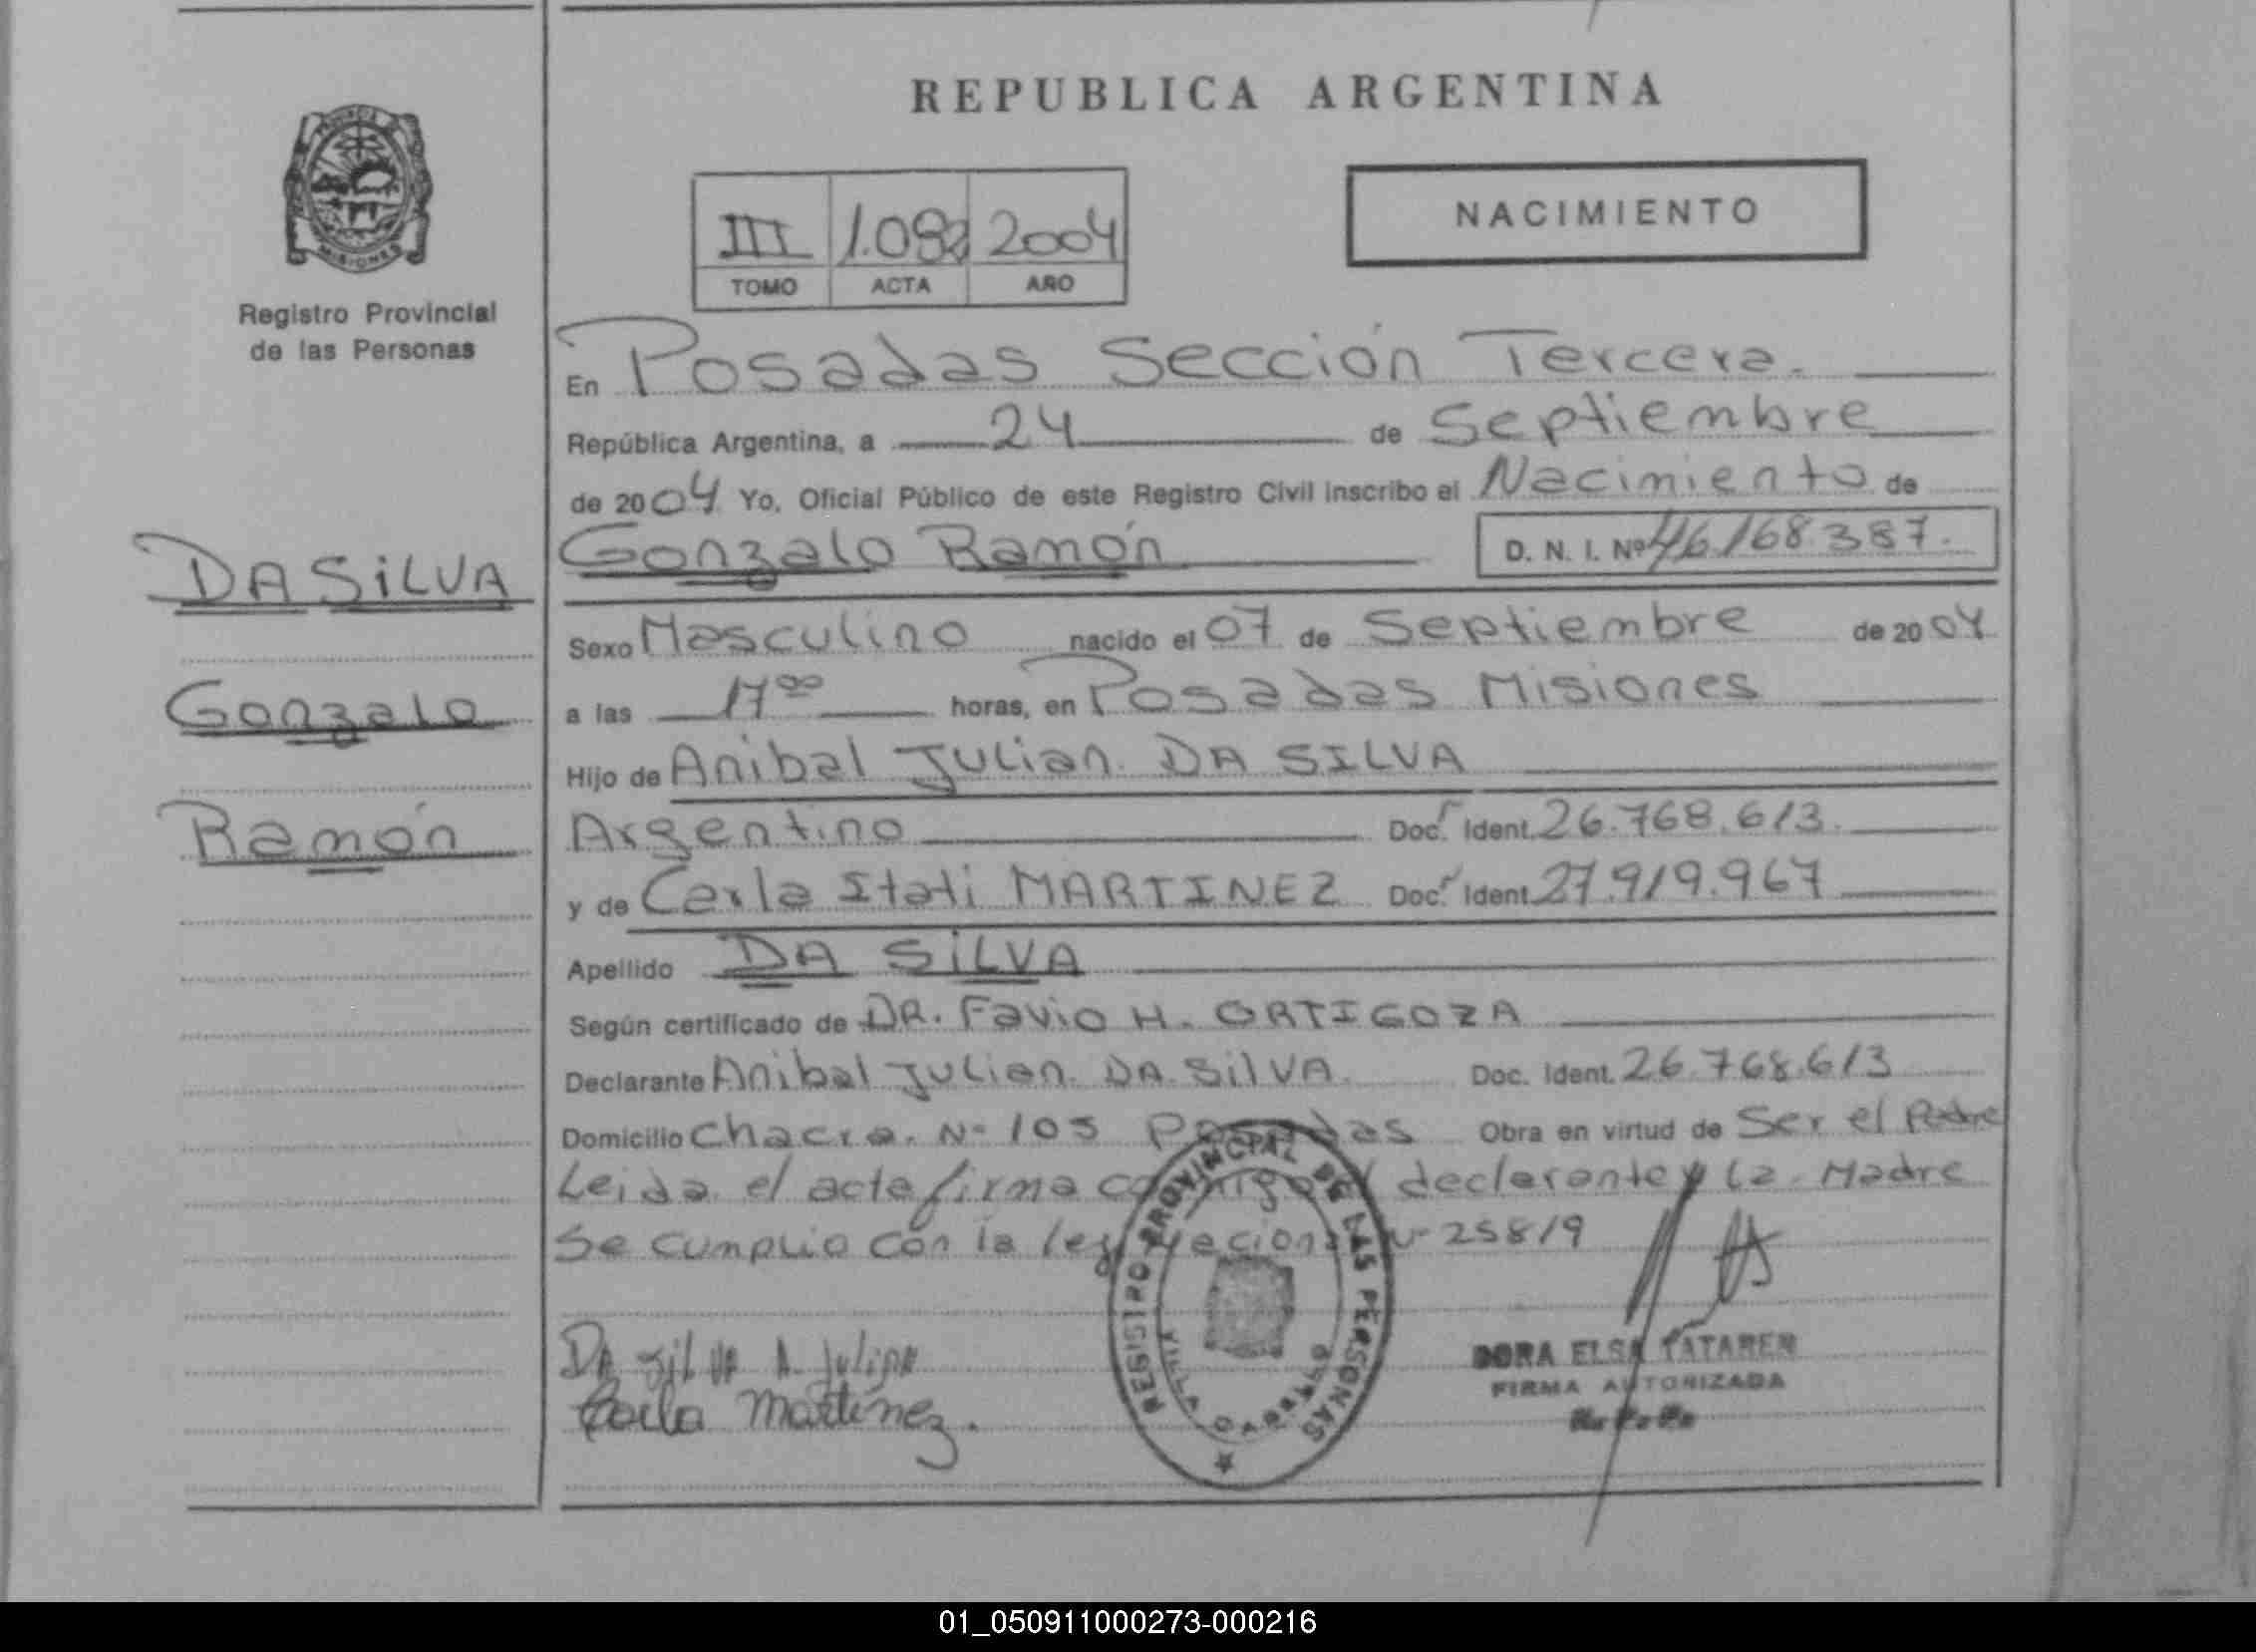 REPUBLICA ARGENTINA
PROVINCIA DE MISIONES
Registro Provincial
de las Personas
III 1.082 2004
TOMO ACTA AÑO
NACIMIENTO
DA SILVA
Gonzalo
Ramón
En Posadas Sección Tercera.
República Argentina, a 24 de Septiembre
de 2004 Yo, Oficial Público de este Registro Civil inscribo el Nacimiento de
Gonzalo Ramón D. N. I. Nº 46.168.387.
Sexo Masculino nacido el 07 de Septiembre de 2004
a las 17⁰⁰ horas, en Posadas Misiones
Hijo de Anibal Julian DA SILVA
Argentino Doc. Ident. 26.768.613.
y de Carla Itati MARTINEZ Doc. Ident. 27.919.967
Apellido DA SiLVA
Según certificado de DR. Favio H. ORTIGOZA
Declarante Anibal Julian DA SilVA. Doc. Ident. 26.768.613
Domicilio Chacra. Nº 105 Posadas Obra en virtud de Ser el Padre
Leida el acta firma conmigo el declarante y la Madre
Se cumplio con la ley Nacional Nº 25819
Da Silva A. Julian
Carla Martinez.
REGISTRO PROVINCIAL DE LAS PERSONAS
VILLA POSADAS
DORA ELSA TATAREN
FIRMA AUTORIZADA
R. P. P.
01_050911000273-000216